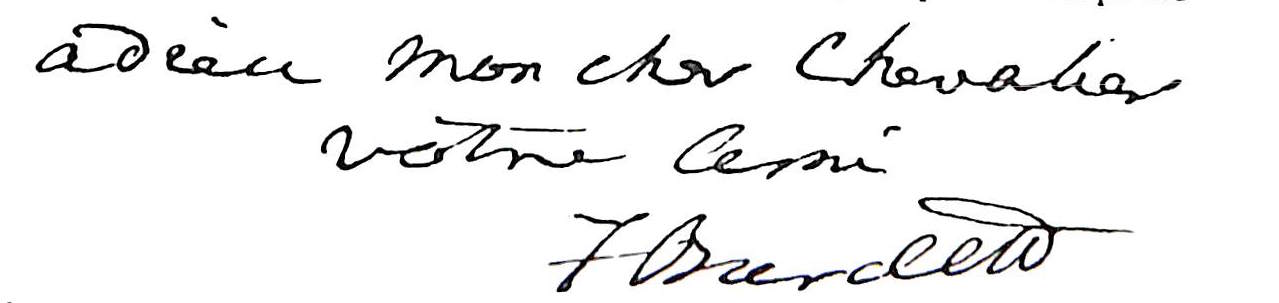 adieu mon cher Chevalier
vôtre Ami
F Burdett